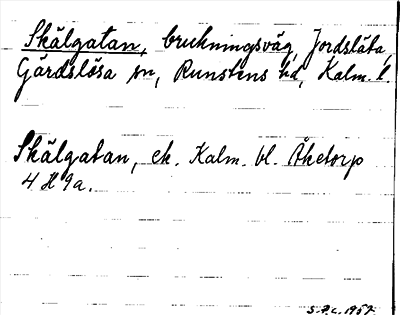 Skälgatan, brukningsväg, Jordsläta,
Gärdslösa sn, Runstens hd, Kalm. l.
Skälgatan, ek. Kalm. bl. Åketorp
4 H 9a.
S.P.C. 1957